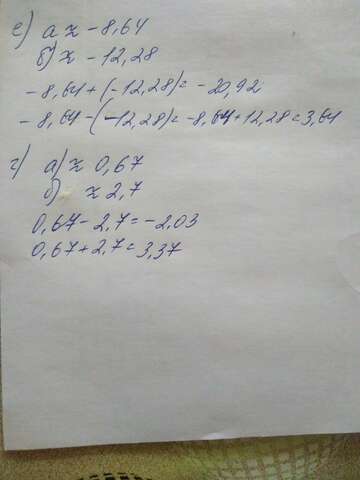 е) а ≈ -8,64
б) ≈ -12,28
-8,64+(-12,28)=-20,92
-8,64-(-12,28)=-8,64+12,28=3,64
г) а) ≈ 0,67
б) ≈ 2,7
0,67-2,7=-2,03
0,67+2,7=3,37